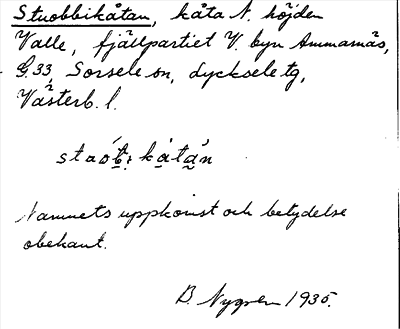 Stuobbikåtan, kåta N. höjden
Valle, fjällpartiet V. byn Ammarnäs,
G.33, Sorsele sn, Lycksele tg,
Västerb. l.
kåtan
Namnets uppkomst och betydelse
obekant.
B. Nygren 1935.